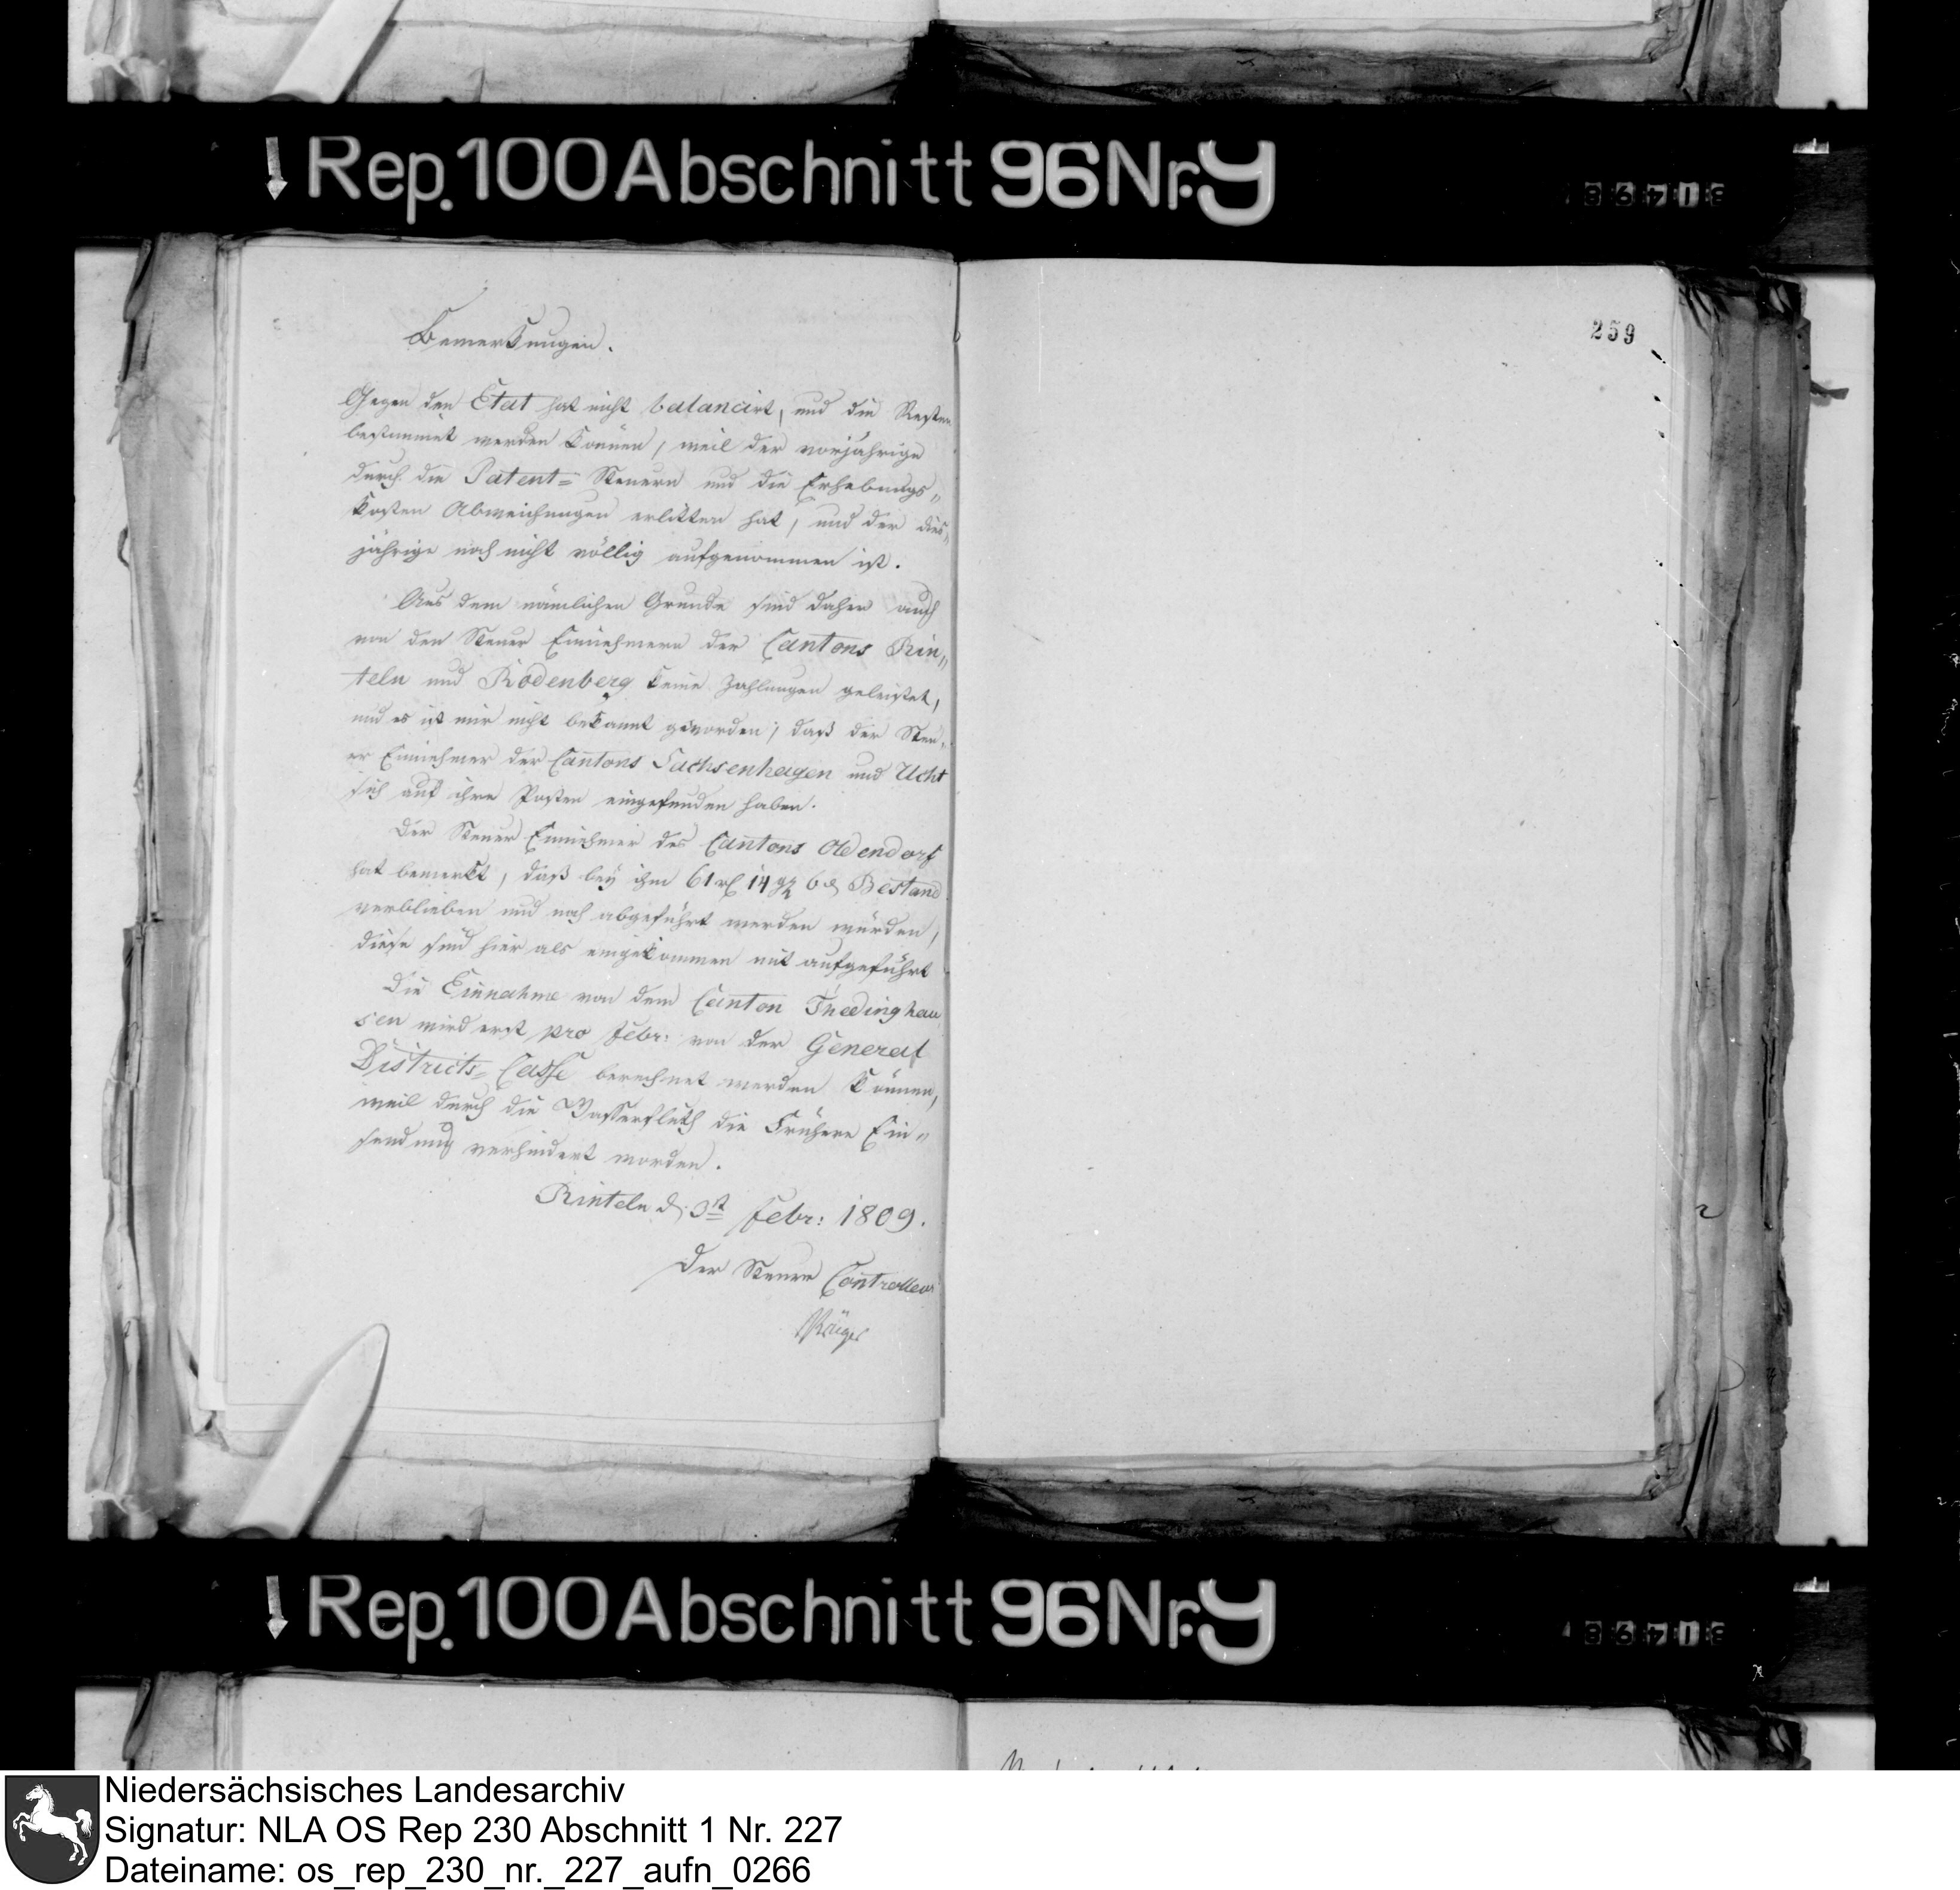 Rep. 100 Abschnitt 96 Nr. 9
259
Bemerkungen.
Gegen den Etat hat nicht balancirt, und die Resten
bestimmt werden können, weil der vorjährige
durch die Patent= Steuern und die Erhebungs„
kosten Abweichungen erlitten hat, und der dies„
jährige noch nicht völlig aufgenommen ist.
Aus dem nämlichen Grunde sind daher auch
von den Steuer Einnehmern der Cantons Rin„
teln und Rodenberg keine Zahlungen geleistet,
und es ist mir nicht bekannt geworden, daß der Steu„
er Einnehmer der Cantons Sachsenhagen und Ucht
sich auf ihre Posten eingefunden haben.
Der Steuer Einnehmer des Cantons Oldendorf
hat bemerkt, daß bey ihm 61 rl 14 ggr 6 d Bestand
verblieben und noch abgeführt werden würden,
diese sind hier als eingekommen mit aufgeführt
Die Einnahme von dem Canton Thedinghau
sen wird erst pro Febr: von der General
Districts= Casse berechnet werden können,
weil durch die Wasserfluth die frühere Ein„
sendung verhindert worden.
Rinteln d. 3st Febr: 1809.
Der Steuer Controlleur
Rep. 100 Abschnitt 96 Nr. 9
Niedersächsisches Landesarchiv
Signatur: NLA OS Rep 230 Abschnitt 1 Nr. 227
Dateiname: os_rep_230_nr._227_aufn_0266